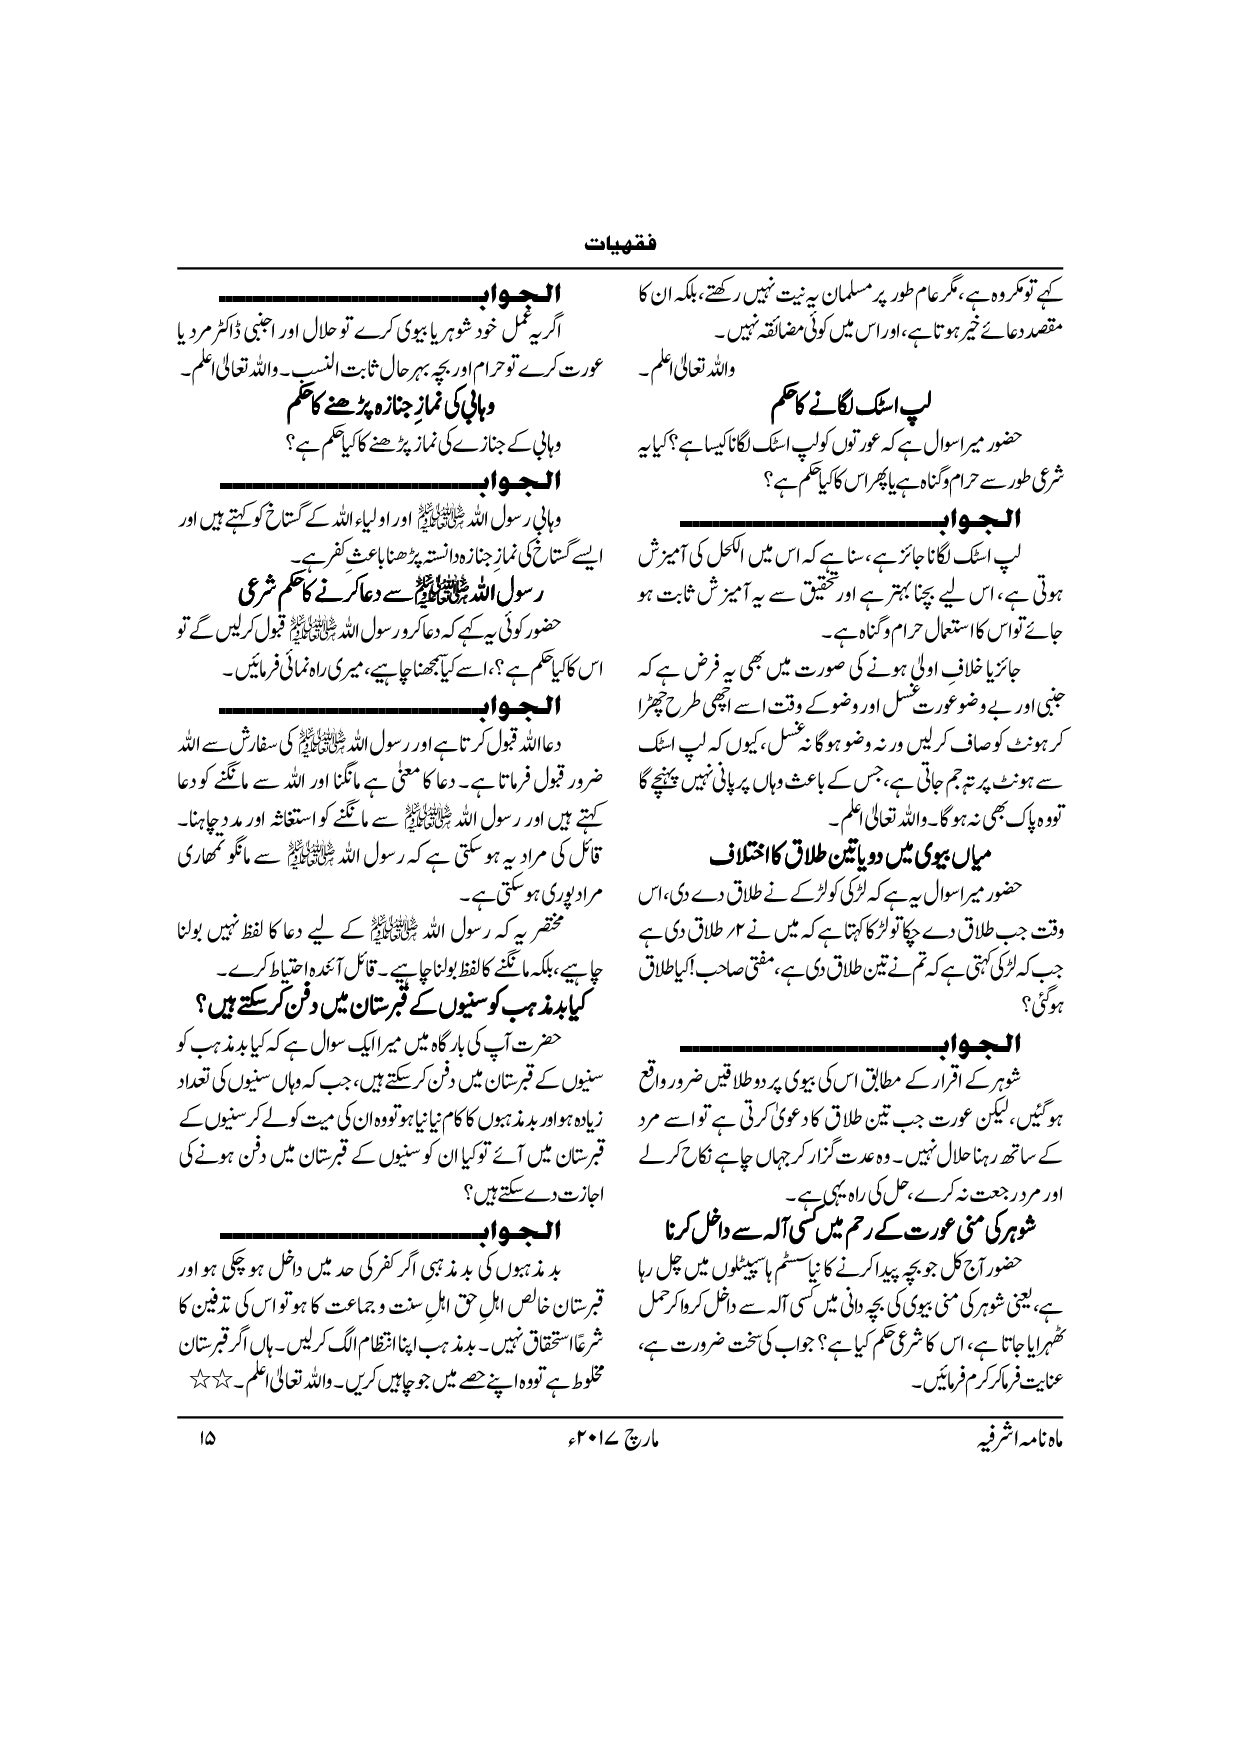 فقہیات
کہے تو مکروہ ہے، مگر عام طور پر مسلمان یہ نیت نہیں رکھتے، بلکہ ان کا
مقصد دعائے خیر ہوتا ہے، اور اس میں کوئی مضائقہ نہیں۔
واللہ تعالیٰ اعلم۔
لپ اسٹک لگانے کا حکم
حضور میرا سوال ہے کہ عورتوں کو لپ اسٹک لگانا کیسا ہے؟ کیا یہ
شرعی طور سے حرام و گناہ ہے یا پھر اس کا کیا حکم ہے؟
الجواب
لپ اسٹک لگانا جائز ہے، سنا ہے کہ اس میں الکحل کی آمیزش
ہوتی ہے، اس لیے بچنا بہتر ہے اور تحقیق سے یہ آمیزش ثابت ہو
جائے تو اس کا استعمال حرام و گناہ ہے۔
جائز یا خلافِ اولیٰ ہونے کی صورت میں بھی یہ فرض ہے کہ
جنبی اور بے وضو عورت غسل اور وضو کے وقت اسے اچھی طرح چھڑا
کر ہونٹ کو صاف کر لیں ورنہ وضو ہوگا نہ غسل، کیوں کہ لپ اسٹک
سے ہونٹ پر تہ جم جاتی ہے، جس کے باعث وہاں پر پانی نہیں پہنچے گا
تو وہ پاک بھی نہ ہوگا۔ واللہ تعالیٰ اعلم۔
میاں بیوی میں دو یا تین طلاق کا اختلاف
حضور میرا سوال یہ ہے کہ لڑکی کو لڑکے نے طلاق دے دی، اس
وقت جب طلاق دے چکا تو لڑکا کہتا ہے کہ میں نے ۲؍ طلاق دی ہے
جب کہ لڑکی کہتی ہے کہ تم نے تین طلاق دی ہے، مفتی صاحب! کیا طلاق
ہو گئی؟
الجواب
شوہر کے اقرار کے مطابق اس کی بیوی پر دو طلاقیں ضرور واقع
ہو گئیں، لیکن عورت جب تین طلاق کا دعویٰ کرتی ہے تو اسے مرد
کے ساتھ رہنا حلال نہیں۔ وہ عدت گزار کر جہاں چاہے نکاح کر لے
اور مرد رجعت نہ کرے، حل کی راہ یہی ہے۔
شوہر کی منی عورت کے رحم میں کسی آلہ سے داخل کرنا
حضور آج کل جو بچہ پیدا کرنے کا نیا سسٹم ہاسپیٹلوں میں چل رہا
ہے، یعنی شوہر کی منی بیوی کی بچہ دانی میں کسی آلہ سے داخل کروا کر حمل
ٹھہرایا جاتا ہے، اس کا شرعی حکم کیا ہے؟ جواب کی سخت ضرورت ہے،
عنایت فرما کر کرم فرمائیں۔
الجواب
اگر یہ عمل خود شوہر یا بیوی کرے تو حلال اور اجنبی ڈاکٹر مرد یا
عورت کرے تو حرام اور بچہ بہر حال ثابت النسب۔ واللہ تعالیٰ اعلم۔
وہابی کی نمازِ جنازہ پڑھنے کا حکم
وہابی کے جنازے کی نماز پڑھنے کا کیا حکم ہے؟
الجواب
وہابی رسول اللہ ﷺ اور اولیاء اللہ کے گستاخ کو کہتے ہیں اور
ایسے گستاخ کی نمازِ جنازہ دانستہ پڑھنا باعثِ کفر ہے۔
رسول اللہ ﷺ سے دعا کرنے کا حکم شرعی
حضور کوئی یہ کہے کہ دعا کرو رسول اللہ ﷺ قبول کر لیں گے تو
اس کا کیا حکم ہے؟، اسے کیا سمجھنا چاہیے، میری راہ نمائی فرمائیں۔
الجواب
دعا اللہ قبول کرتا ہے اور رسول اللہ ﷺ کی سفارش سے اللہ
ضرور قبول فرماتا ہے۔ دعا کا معنیٰ ہے مانگنا اور اللہ سے مانگنے کو دعا
کہتے ہیں اور رسول اللہ ﷺ سے مانگنے کو استغاثہ اور مدد چاہنا۔
قائل کی مراد یہ ہو سکتی ہے کہ رسول اللہ ﷺ سے مانگو تمھاری
مراد پوری ہو سکتی ہے۔
مختصر یہ کہ رسول اللہ ﷺ کے لیے دعا کا لفظ نہیں بولنا
چاہیے، بلکہ مانگنے کا لفظ بولنا چاہیے۔ قائل آئندہ احتیاط کرے۔
کیا بد مذہب کو سنیوں کے قبرستان میں دفن کر سکتے ہیں؟
حضرت آپ کی بارگاہ میں میرا ایک سوال ہے کہ کیا بد مذہب کو
سنیوں کے قبرستان میں دفن کر سکتے ہیں، جب کہ وہاں سنیوں کی تعداد
زیادہ ہو اور بد مذہبوں کا کام نیا نیا ہو تو وہ ان کی میت کو لے کر سنیوں کے
قبرستان میں آئے تو کیا ان کو سنیوں کے قبرستان میں دفن ہونے کی
اجازت دے سکتے ہیں؟
الجواب
بد مذہبوں کی بد مذہبی اگر کفر کی حد میں داخل ہو چکی ہو اور
قبرستان خالص اہلِ حق اہلِ سنت و جماعت کا ہو تو اس کی تدفین کا
شرعًا استحقاق نہیں۔ بد مذہب اپنا انتظام الگ کر لیں۔ ہاں اگر قبرستان
مخلوط ہے تو وہ اپنے حصے میں جو چاہیں کریں۔ واللہ تعالیٰ اعلم۔☆☆
ماہ نامہ اشرفیہ
مارچ ۲۰۱۷ء
۱۵